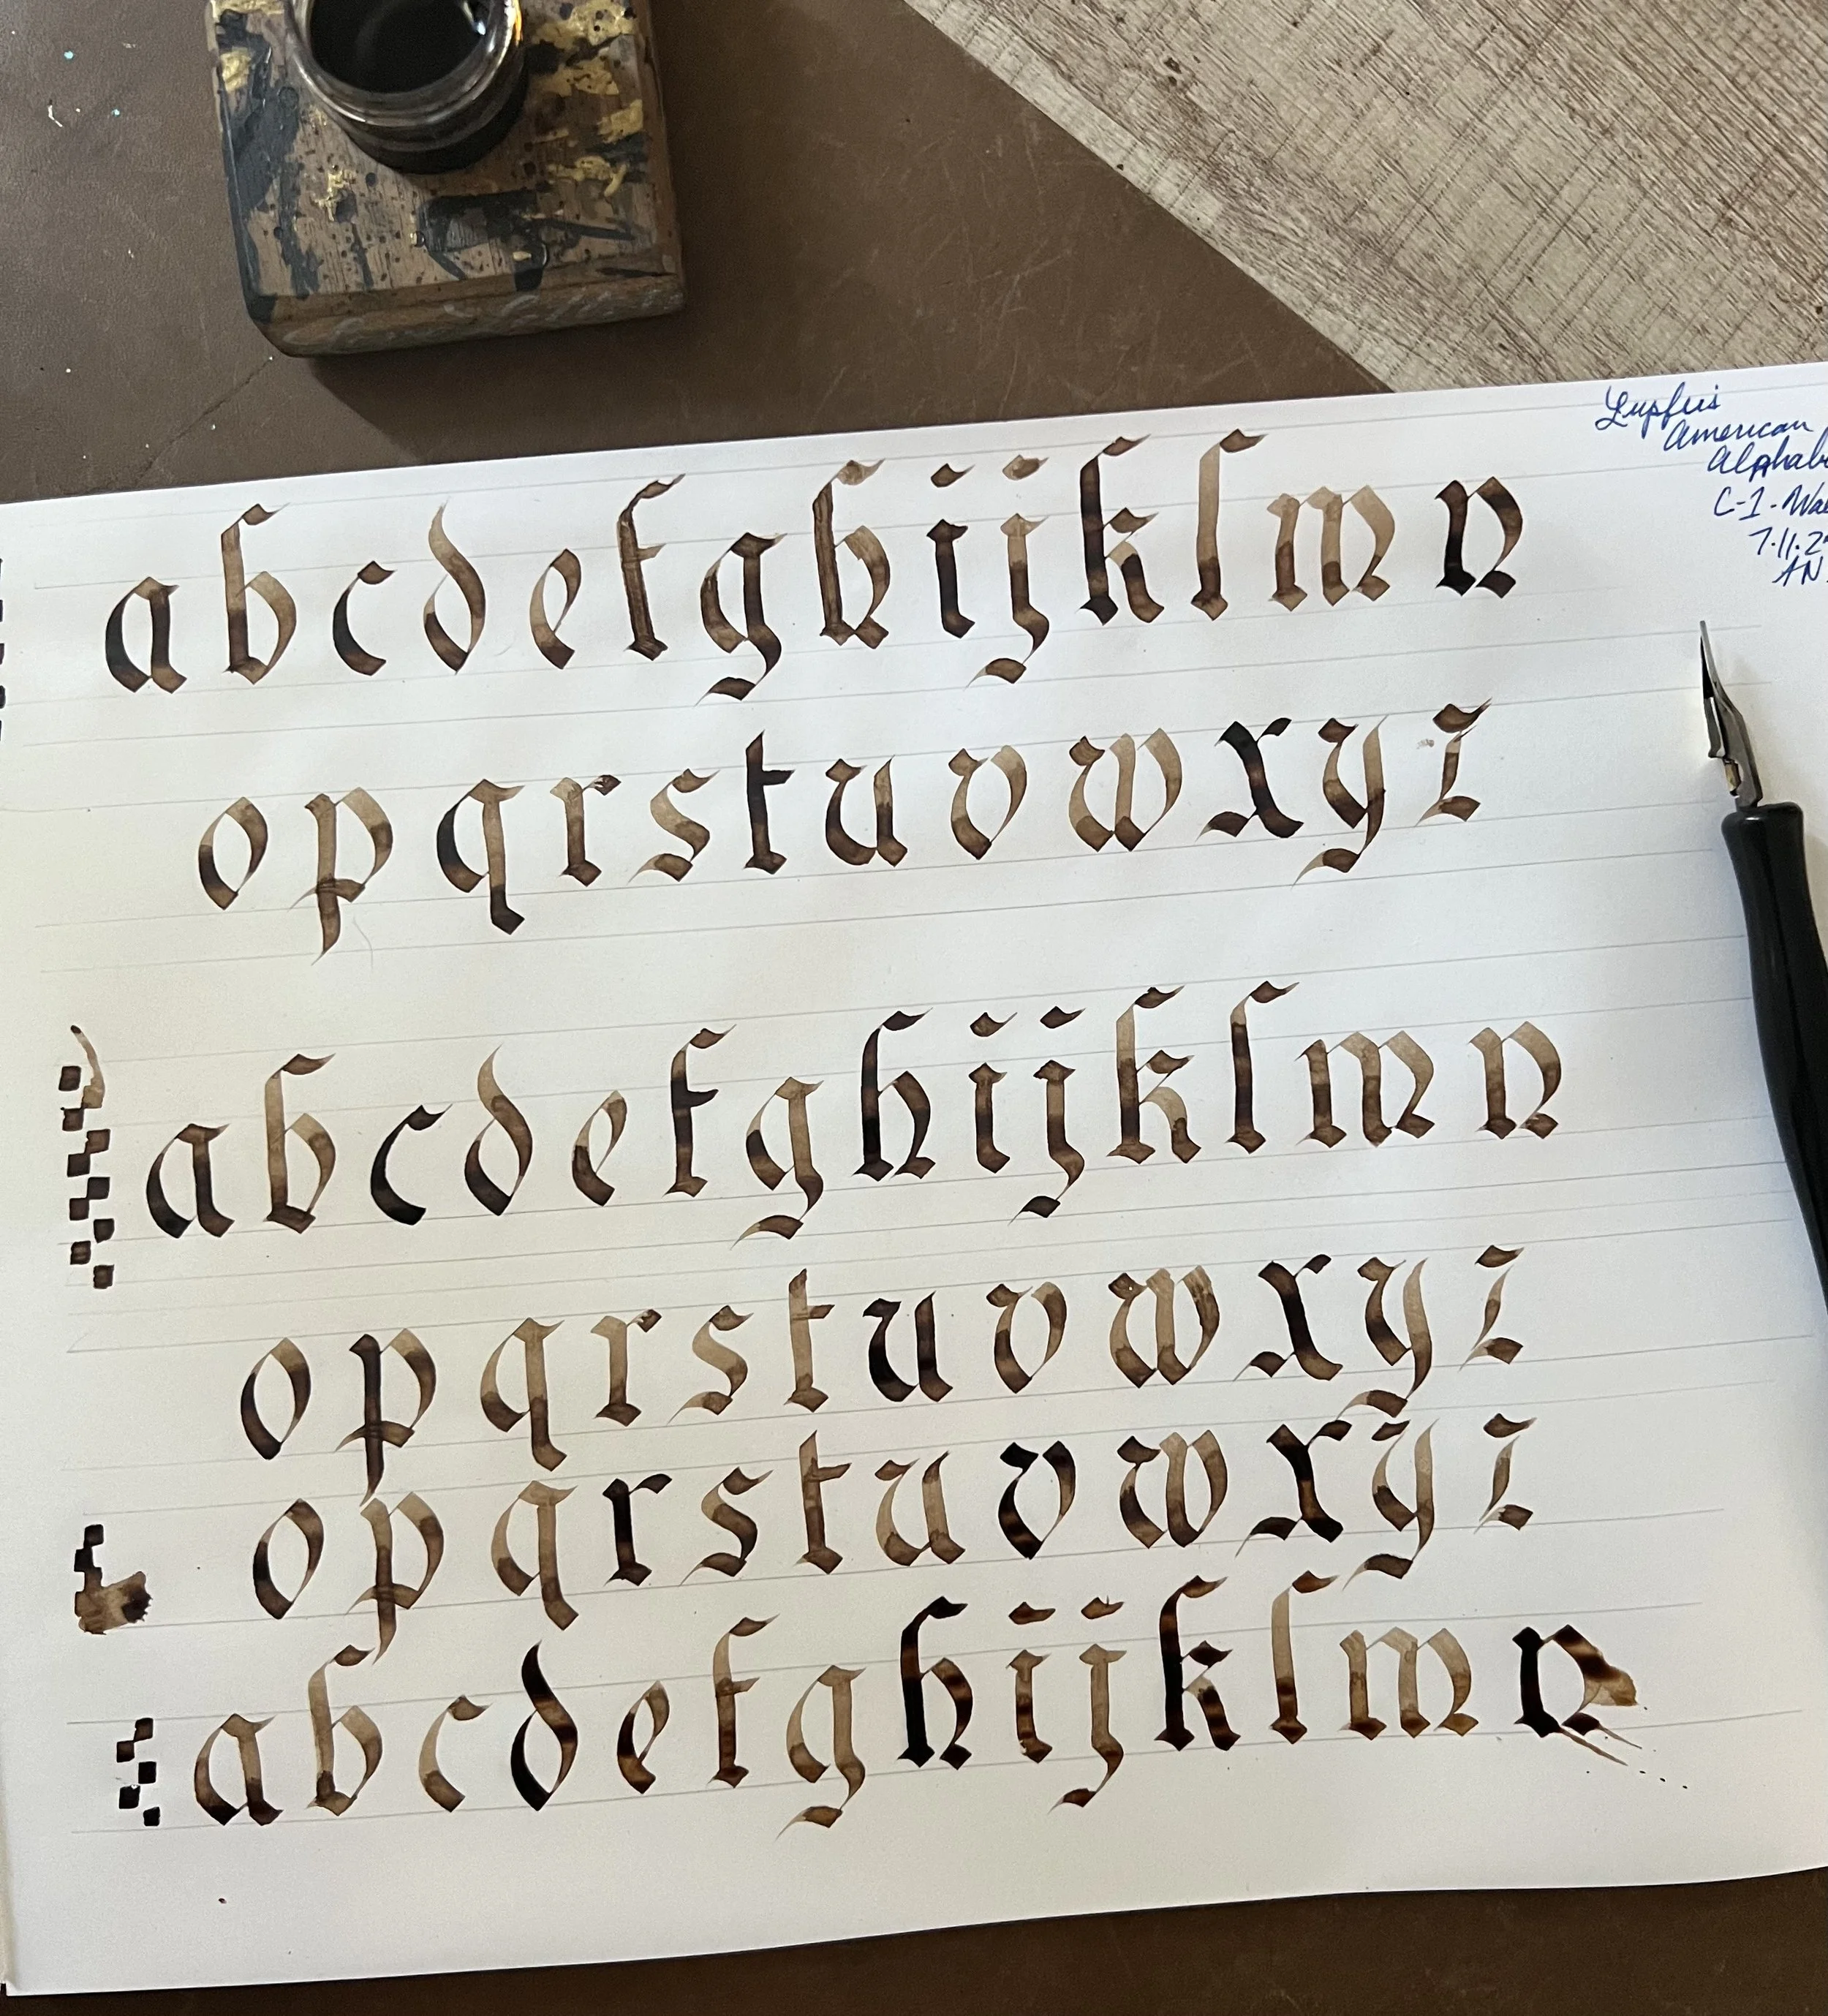 Lupfer's
American
C-1
7.11.2
AN
a b c d e f g h i j k l m n
o p q r s t u v w x y z
a b c d e f g h i j k l m n
o p q r s t u v w x y z
o p q r s t u v w x y z
a b c d e f g h i j k l m n